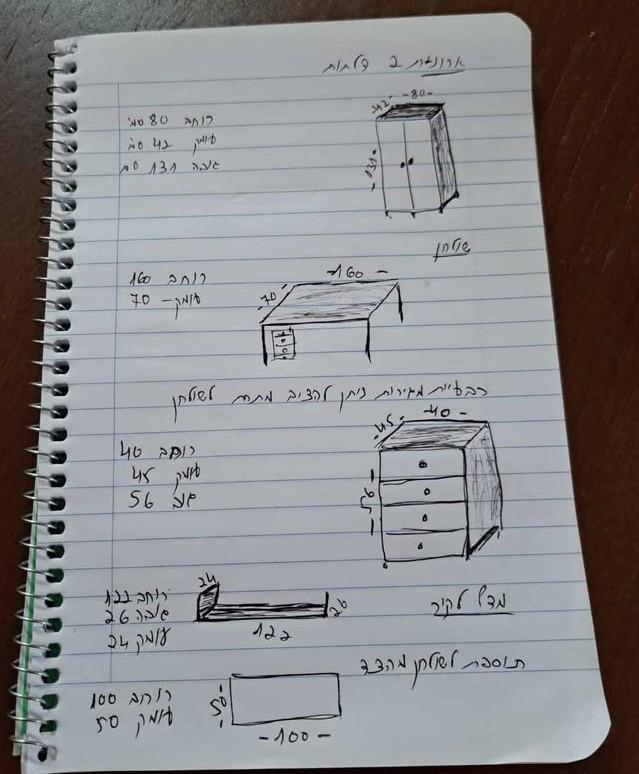 ארונית 2 דלתות
רוחב 80 סמ
עומק 42 סמ
גובה 131 סמ
42- -80-
-131-
שולחן
רוחב 160
עומק- 70
-160-
-70-
רבעיית מגירות ניתן להציב מתחת לשולחן
רוחב 40
עומק 45
גוב 56
-45- -40-
-56-
מדף לקיר
רוחב 122
גובה 26
עומק 24
24
26
122
תוספת לשולחן מהצד
רוחב 100
עומק 50
-50-
-100-